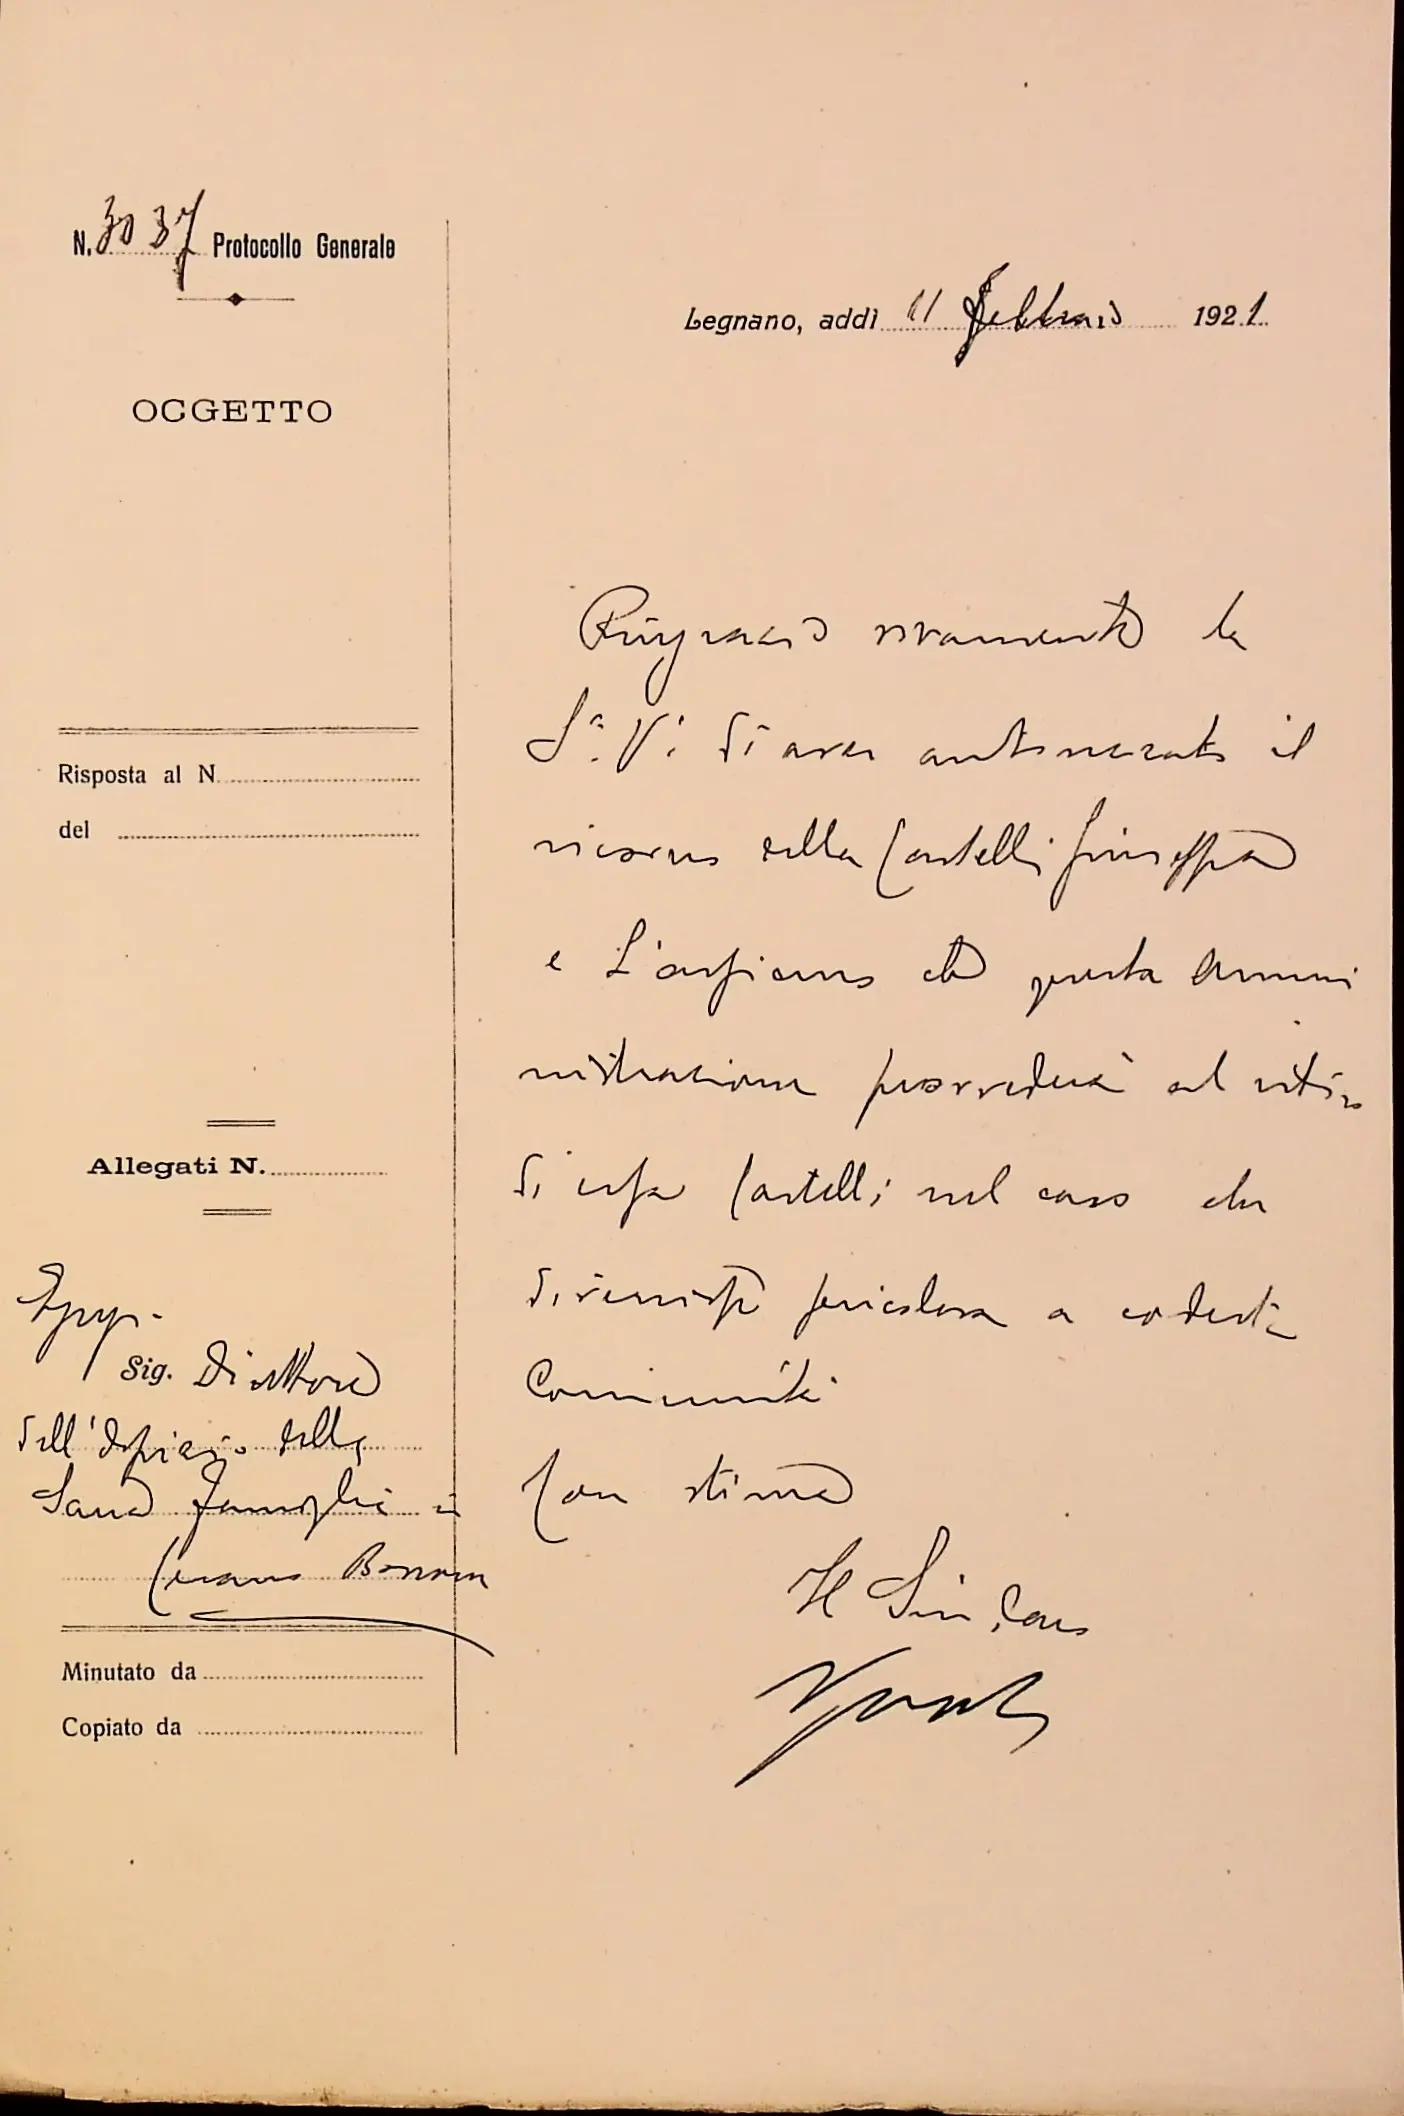 N. 3037 Protocollo Generale
Legnano, addì 11 febbraio 1921.
OGGETTO
Ringrazio vivamente la
S.a V. di aver autorizzato il
ricovero della Castelli Giuseppa
e L'assicuro che questa Ammi
nistrazione provvederà al ritiro
di essa Castelli nel caso che
divenisse pericolosa a codesta
Comunità
Con stima
Il Sindaco
Risposta al N.
del
Allegati N.
Sig. Direttore
dell'Ospizio della
Sacra Famiglia in
Cesano Boscone
Minutato da
Copiato da